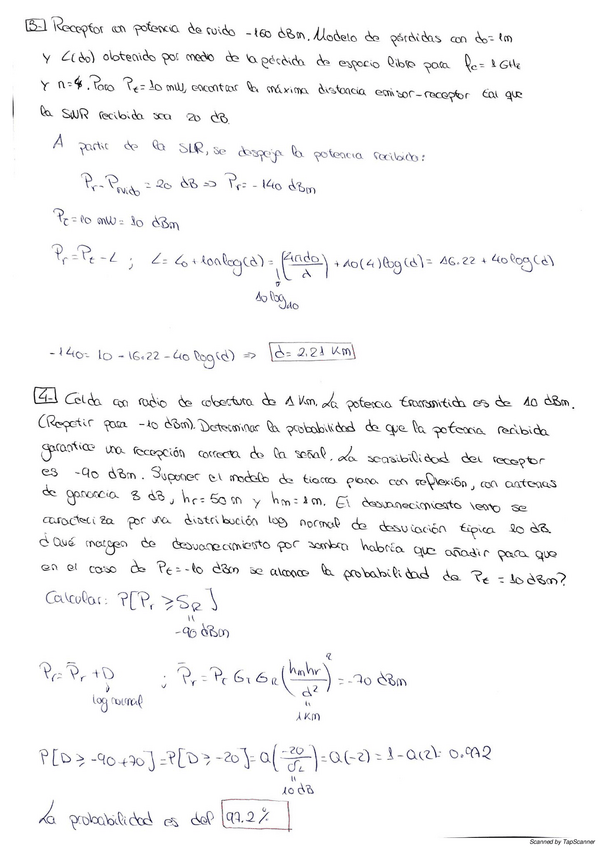 3- Receptor con potencia de ruido -160 dBm. Modelo de pérdidas con d₀=1m
y L(do) obtenido por medio de la pérdida de espacio libre para fc=1GHz
y n=4. Para Pt=10 mW, encontrar la máxima distancia emisor-receptor tal que
la SNR recibida sea 20 dB.
A partir de la SNR, se despeja la potencia recibida:
Pr-Pruido = 20 dB => Pr=-140 dBm
Pt=10 mW=10 dBm
Pr=Pt-L ; L=L₀+10nlog(d)=[4πdo/λ]+10(4)log(d)=16.22+40log(d)
10log10
-140=10-16.22-40log(d) => d=2.21 Km
4- Celda con radio de cobertura de 1 Km. La potencia transmitida es de 10 dBm.
(Repetir para -10 dBm). Determinar la probabilidad de que la potencia recibida
garantice una recepción correcta de la señal. La sensibilidad del receptor
es -90 dBm. Suponer el modelo de tierra plana con reflexión, con antenas
de ganancia 3 dB, hr=50m y hm=1m. El desvanecimiento lento se
caracteriza por una distribución log normal de desviación típica 10 dB.
¿Qué margen de desvanecimiento por sombra habría que añadir para que
en el caso de Pt=-10 dBm se alcance la probabilidad de Pt=10dBm?
Calcular: P[Pr ≥ SR]
=
-90 dBm
Pr=P̄r+D ; P̄r=Pt GT GR(hmhr/d²)²=-70 dBm
log normal
=
1Km
P[D≥-90+70]=P[D≥-20]=Q(-20/σL)=Q(-2)=1-Q(2)=0.972
=
10 dB
La probabilidad es del 97.2%
Scanned by TapScanner